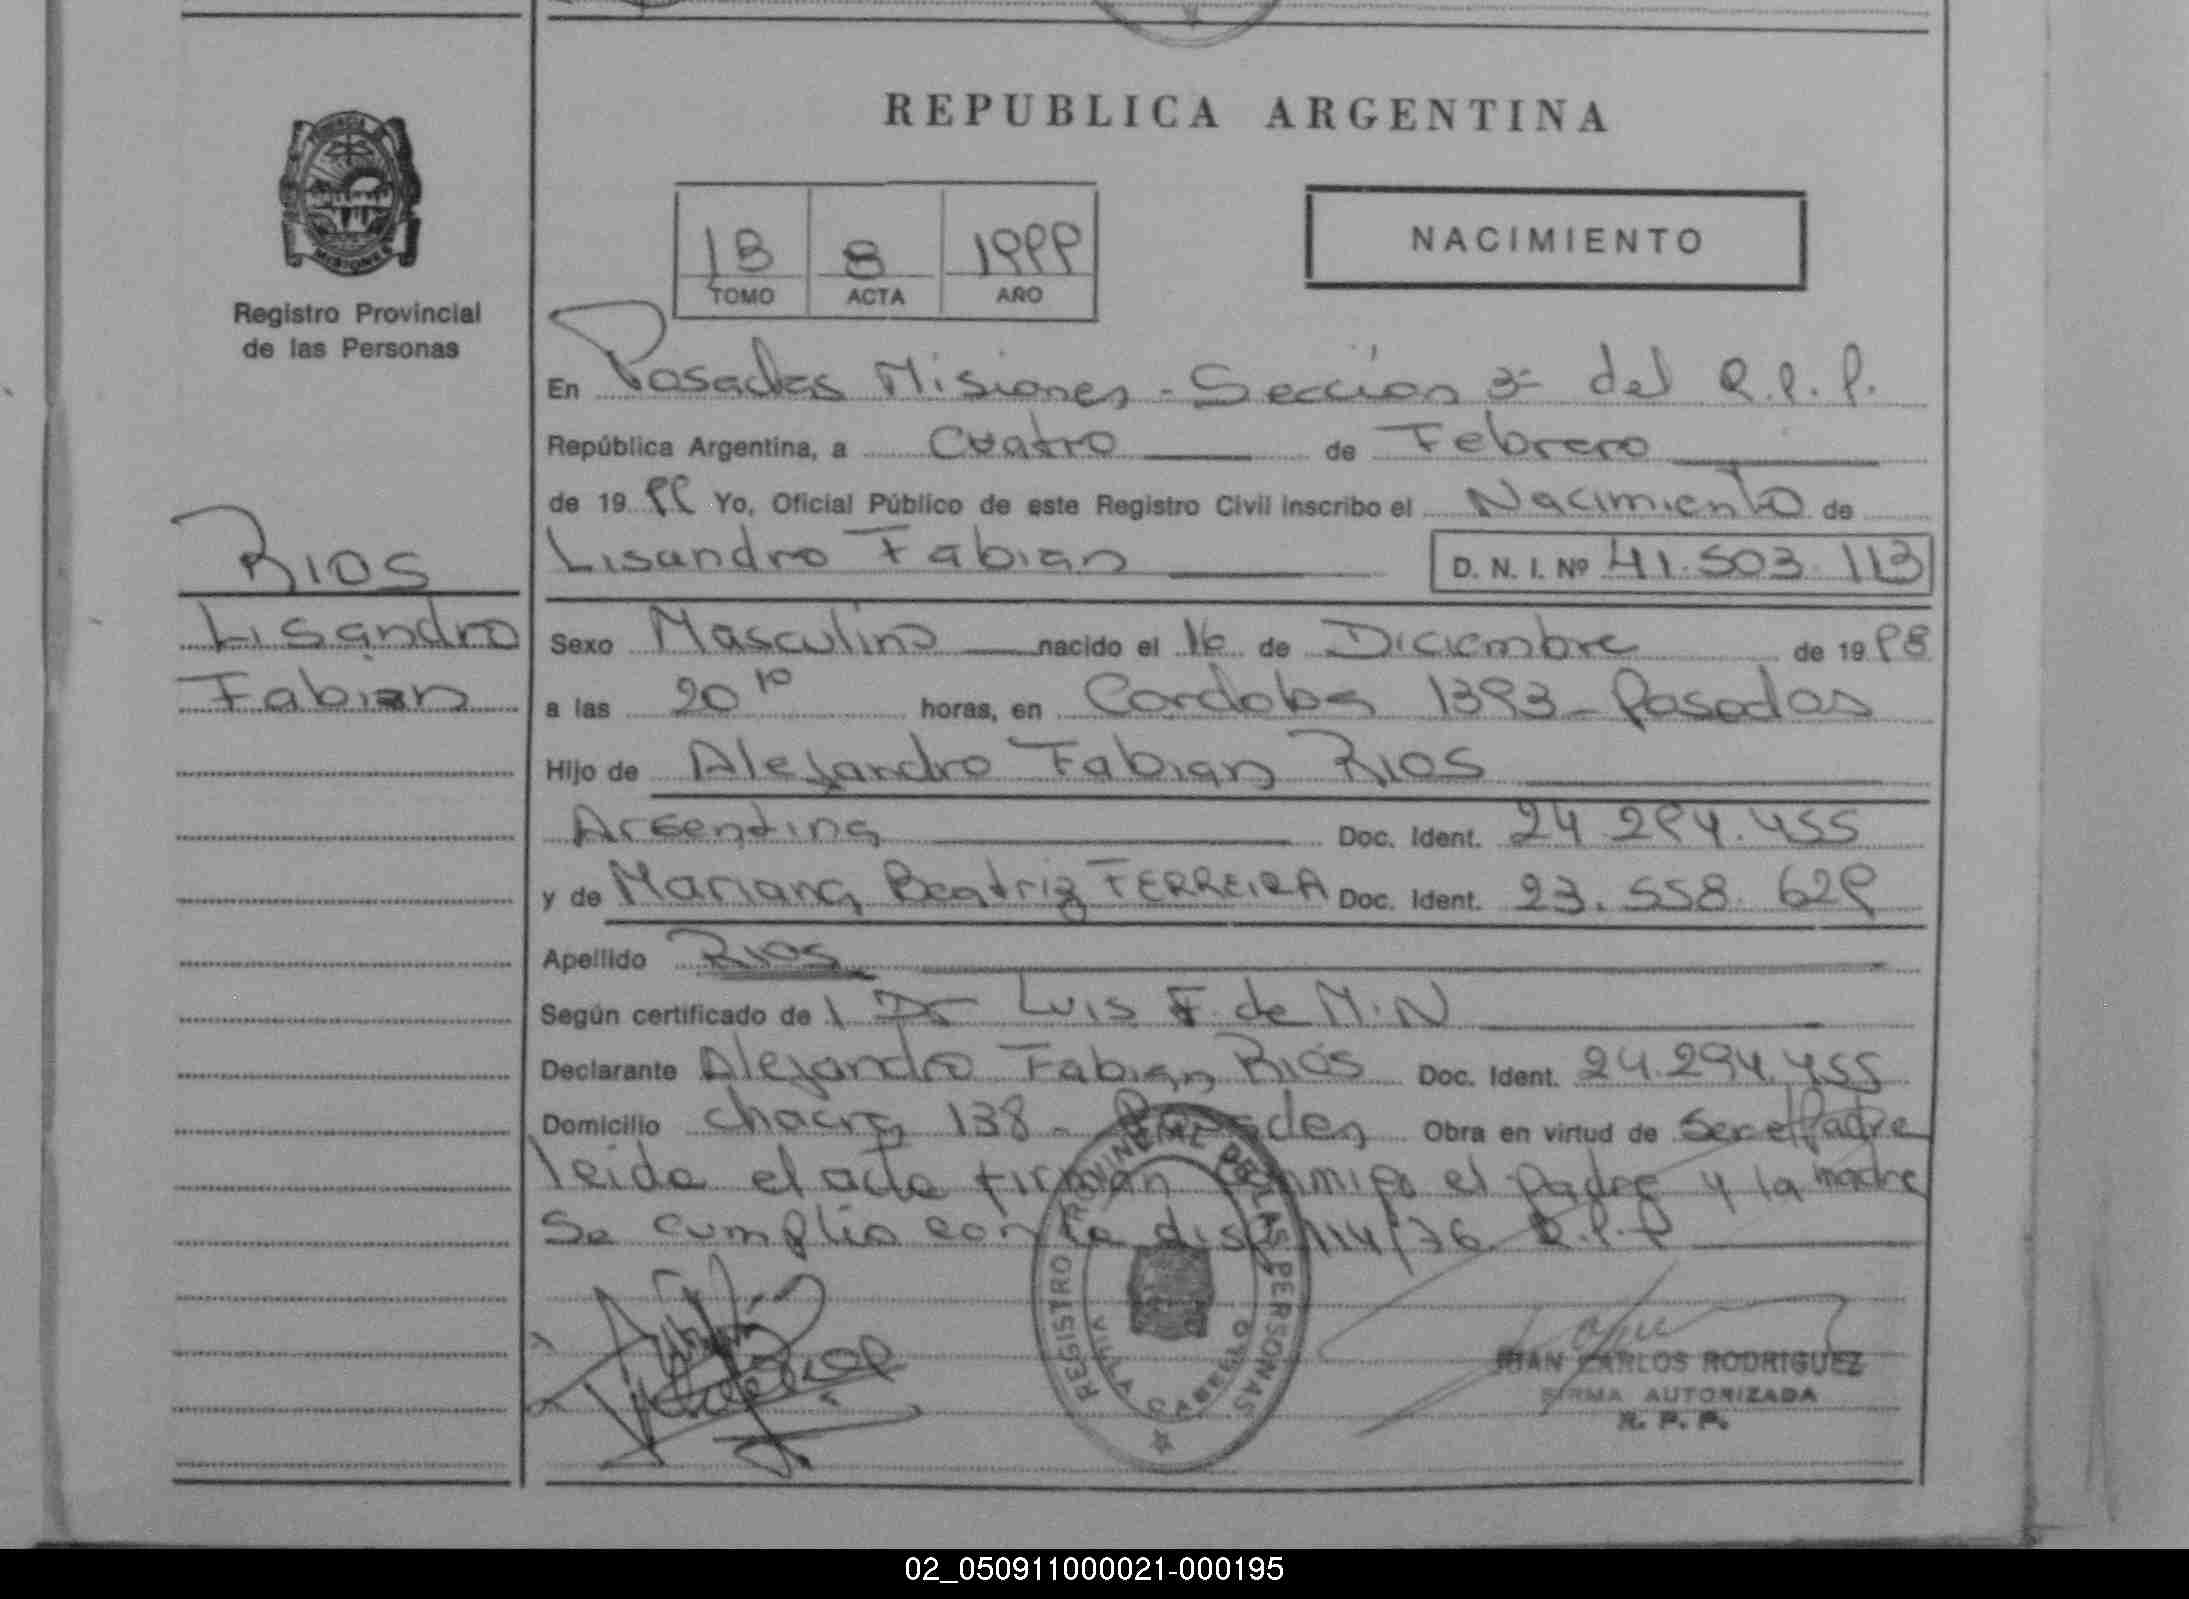 REPUBLICA ARGENTINA
Registro Provincial
de las Personas
1B 8 1999
TOMO ACTA AÑO
NACIMIENTO
En Posadas Misiones - Sección 3ª del R.P.P.
República Argentina, a Cuatro de Febrero
de 1999 Yo, Oficial Público de este Registro Civil inscribo el Nacimiento de
Lisandro Fabian D. N. I. Nº 41.503.113
RIOS
Lisandro
Fabian
Sexo Masculino nacido el 16 de Diciembre de 1998
a las 20 10 horas, en Cordoba 1393 - Posadas
Hijo de Alejandro Fabian RIOS
Argentina Doc. Ident. 24.294.455
y de Mariana Beatriz FERREIRA Doc. Ident. 23.558.629
Apellido RIOS
Según certificado de Dr Luis F. de M.N
Declarante Alejandro Fabian Rios Doc. Ident. 24.294.455
Domicilio chacra 138 - Posadas Obra en virtud de Ser el Padre
leida el acta firman conmigo el padre y la madre
Se cumplio con la disp 114/76 R.P.P
REGISTRO PROVINCIAL DE LAS PERSONAS
VILLA CABELLO
JUAN CARLOS RODRIGUEZ
FIRMA AUTORIZADA
R. P. P.
02_050911000021-000195